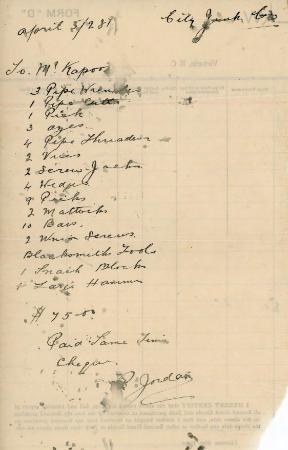 FORM "D"
City Junk Co
April 5/281
Victoria, B.C.
To Mr Kapoor
3 Pipe Wrenches
1 Pipe Cutter
1 Pick
3 axes
4 Pipe Threaders
2 Vices
2 Screw Jacks
4 Wedges
9 Picks
2 Mattocks
10 Bars
2 Screws
Blacksmiths Tools
1 Snatch Block
1 Large Hammer
$75.00
Paid Same Time
Cheque
Jordan
I HEREBY CERTIFY